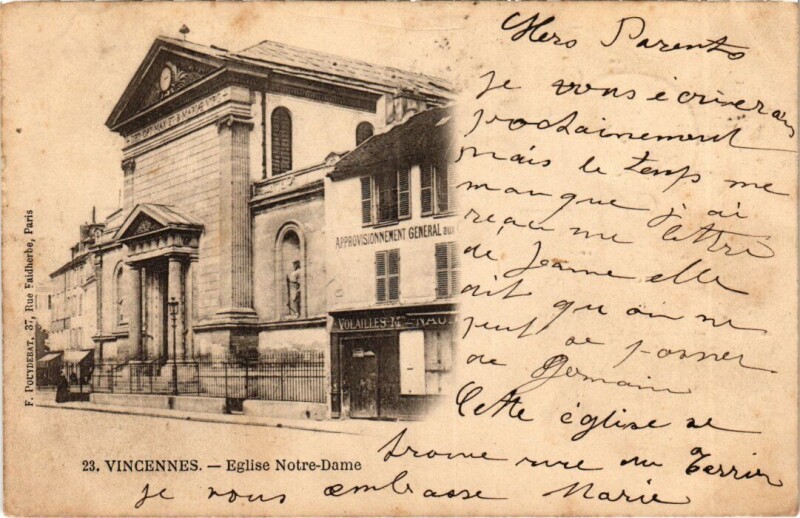 Chers Parents
je vous écriverai
prochainement
mais le temps me
manque j'ai
reçu une lettre
de Jeanne elle
dit qu'on ne
peut se passer
de Germain
Cette église se
trouve rue du Terrier
je vous embrasse Marie
APPROVISIONNEMENT GENERAL AUX
VOLAILLES
F. POUYDEBAT, 37, Rue Faidherbe, Paris
23. VINCENNES. — Eglise Notre-Dame